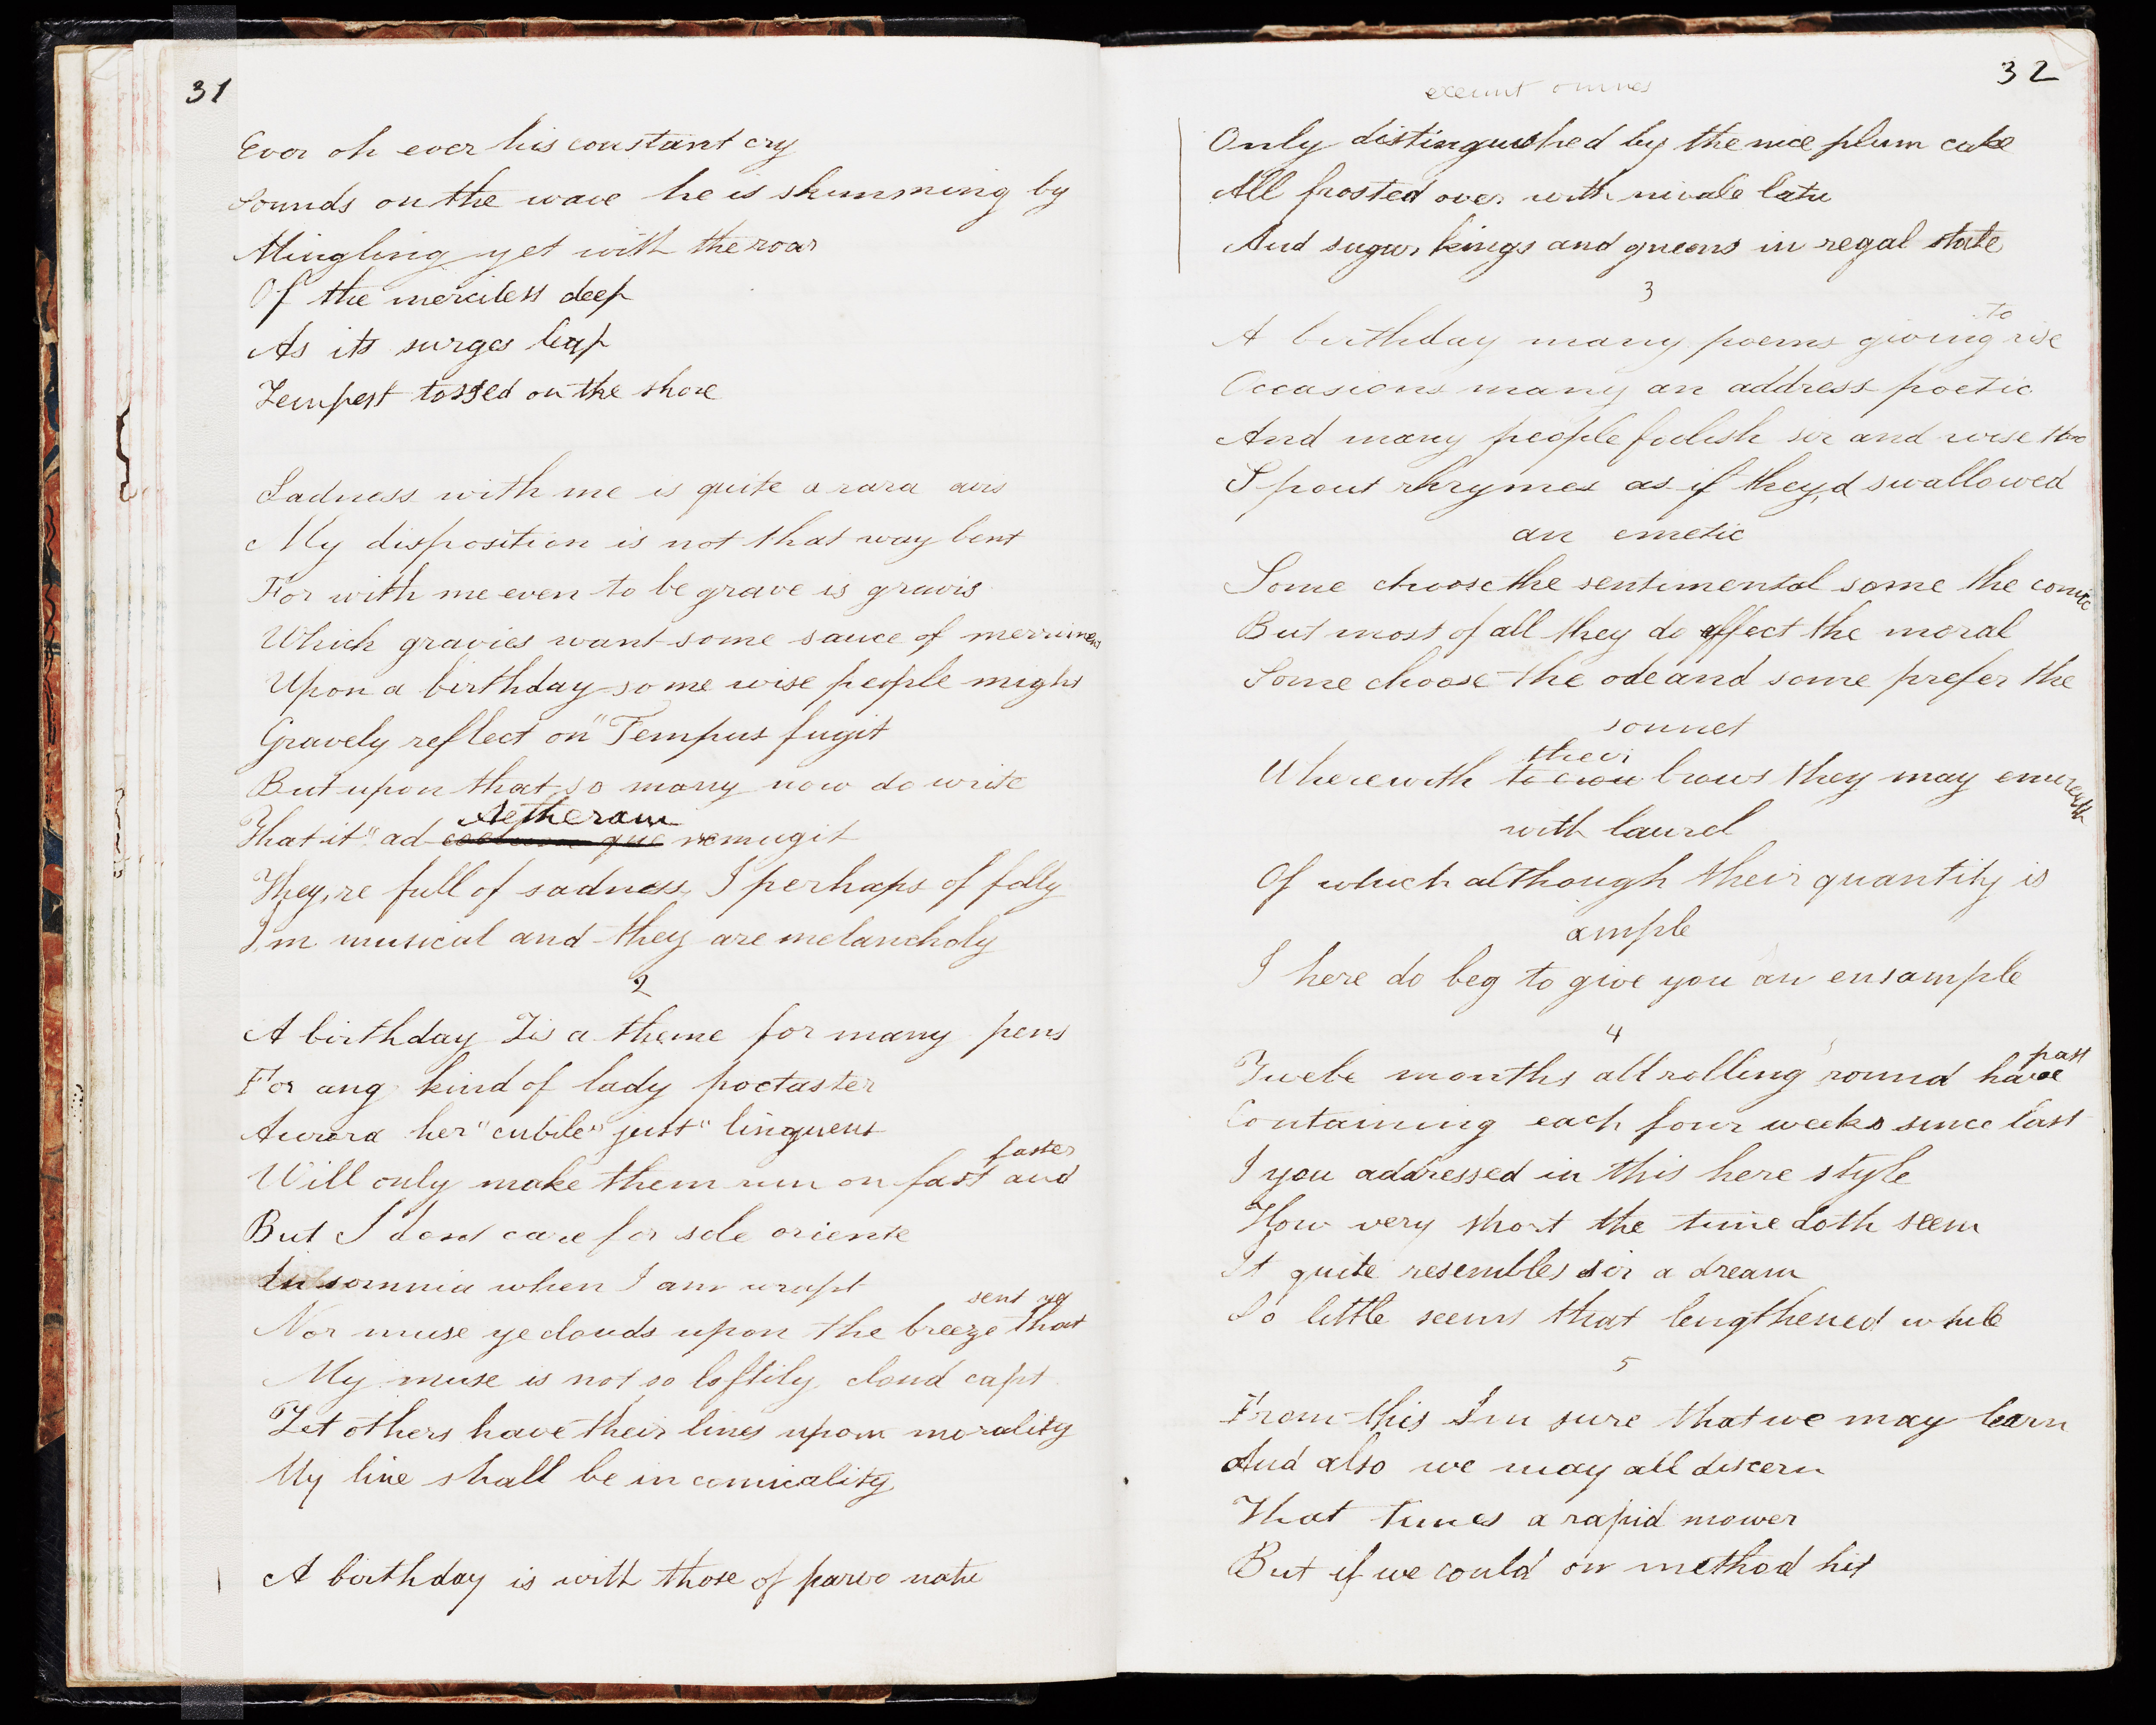 31
Ever oh ever his constant cry
Sounds on the wave he is skimming by
Mingling yet with the roar
Of the merciless deep
As its surges leap
Tempest tossed on the shore
Sadness with me is quite a rara avis
My disposition is not that way bent
For with me even to be grave is gravis
Which gravies want some sauce of merriment
Upon a birthday some wise people might
Gravely reflect on "Tempus fugit
But upon that so many now do write
Aetheram
That it "ad remugit
They,re full of sadness, I perhaps of folly
I,m musical and they are melancholy
2
A birthday Tis a theme for many pens
For any kind of lady poetaster
Aurora her "cubile" just "linquens
faster
Will only make them run on fast and
But I dont care for sole oriente
In somnia when I am wrapt
sent ye
Nor muse ye clouds upon the breeze that
My muse is not so loftily cloud capt
Let others have their lines upon morality
My line shall be in comicality
A birthday is with those of parvo natu
32
exeunt omnes
Only distinguished by the nice plum cake
All frosted over with nivale latu
And sugar kings and queens in regal state
3
to
A birthday many poems giving rise
Occasions many an address poetic
And many people foolish sir and wise
Spout rhrymes as if they,d swallowed
an emetic
Some choose the sentimental some the comic
But most of all they do affect the moral
Some choose the ode and some prefer the
sonnet
their
Wherewith brows they may enwreath
with laurel
Of which although their quantity is
ample
I here do beg to give you an ensample
4
past
Twelve months all rolling round have
Containing each four weeks since last
I you addressed in this here style
How very short the time doth seem
It quite resembles sir a dream
So little seems that lengthened while
5
From this Im sure that we may learn
And also we may all discern
That times a rapid mower
But if we could on method hit